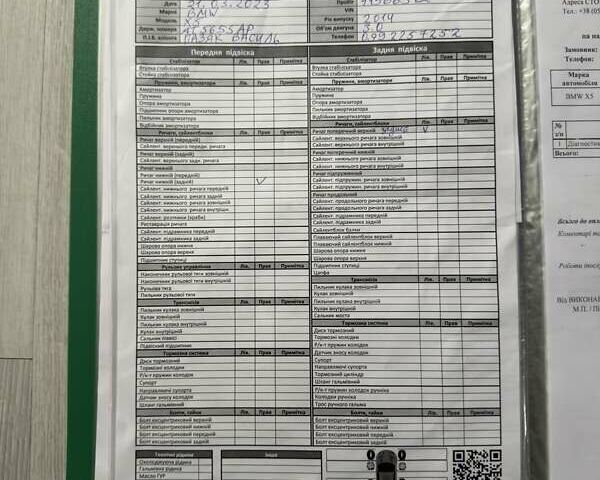 Дата 21.03.2023 Пробіг
Марка BMW VIN
Модель Рік випуску 2014
Держ. номер Об'єм двигуна 3.0
П.І.Б. клієнта Телефон
Передня підвіска Задня підвіска
Стабілізатор Лів. Прав Примітка Стабілізатор Лів. Прав Примітка
Втулка стабілізатора Втулка стабілізатора
Стойка стабілізатора Стойка стабілізатора
Пружини, амортизатори Лів. Прав Примітка Пружини, амортизатори Лів. Прав Примітка
Амортизатор Амортизатор
Пружина Пружина
Опора амортизатора Опора амортизатора
Підшипник опори амортизатора Пильник амортизатора
Пильник амортизатора Відбійник амортизатора
Відбійник амортизатора
Ричаги, сайлентблоки Лів. Прав Примітка Ричаги, сайлентблоки Лів. Прав Примітка
Ричаг верхній (передній) Ричаг поперечний верхній V
Сайлент. верхнього передн. ричага Сайлент. верхнього ричага зовнішній
Ричаг верхній (задній) Сайлент. верхнього ричага внутрішній
Сайлент. верхнього задн. ричага Ричаг поперечний нижній
Ричаг нижній Сайлент. нижнього ричага зовнішній
Ричаг нижній (передній) Сайлент. нижнього ричага внутрішній
Ричаг нижній (задній) V Ричаг підпружинний
Сайлент. нижнього ричага передній Сайлент. підпружин. ричага зовнішній
Сайлент. нижнього ричага задній Сайлент. підпружин. ричага внутрішній
Сайлент. нижнього ричага зовнішній Ричаг продольний
Сайлент. нижнього ричага внутрішн. Сайлент. продольного ричага передній
Сайлент. розтяжки (краба) Сайлент. продольного ричага задній
Реставрація ричага Сайлент. підрамника передній
Сайлент. підрамника передній Сайлент. підрамника задній
Сайлент. підрамника задній Сайлентблок балки
Шарова опора нижня Плаваючий сайлентблок верхній
Шарова опора верхня Плаваючий сайлентблок нижній
Підшипник ступиці Шарова опора нижня
Шарова опора верхня
Підшипник ступиці
Цапфа
Рульове управління Лів. Прав Примітка
Наконечник рульової тяги зовнішній
Наконечник рульової тяги внутрішній
Рульова тяга
Пильник рульової тяги
Трансмісія Лів. Прав Примітка Трансмісія Лів. Прав Примітка
Пильник кулака зовнішній Пильник кулака зовнішній
Кулак зовнішній Кулак зовнішній
Пильник кулака внутрішній Пильник кулака внутрішній
Кулак внутрішній Кулак внутрішній
Сальник піввісі Сальник моста
Підвісний підшипник
Тормозна система Лів. Прав Примітка Тормозна система Лів. Прав Примітка
Диск тормозний Диск тормозний
Тормозні колодки Тормозні колодки
Р/к-т пружин колодок Р/к-т пружин колодок
Супорт Датчик зносу колодок
Направляючі супорта Супорт
Датчик зносу колодок Направляючі супорта
Шланг гальмівний Тормозний циліндр
Шланг гальмівний
Р/к-т пружин колодок ручніка
Колодки ручніка
Трос ручного гальма
Болти, гайки Лів. Прав Примітка Болти, гайки Лів. Прав Примітка
Болт ексцентриковий верхній Болт ексцентриковий верхній
Болт ексцентриковий нижній Болт ексцентриковий нижній
Болт ексцентриковий передній Болт ексцентриковий передній
Болт ексцентриковий задній Болт ексцентриковий задній
Технічні рідини Інше
Охолоджуюча рідина
Гальмівна рідина
Масло ГУР
Адреса СТО
Тел.: +38 (0
на на
Замовник:
Телефон:
Марка автомобіля
BMW X5
№ з/п
1 Діагностик
Всього:
Коментарі
Від ВИКОНАВ
М.П. / Пі